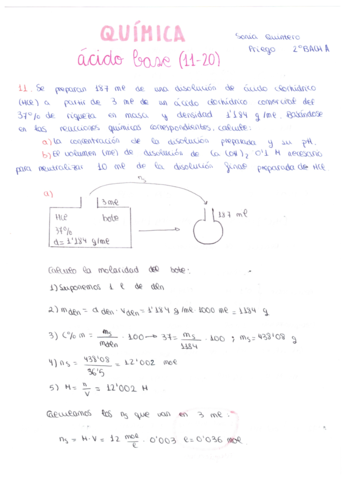 QUÍMICA
Sonia Quintero
Priego 2ºBACH A
ácido base (11-20)
11. Se preparan 187 ml de una disolución de ácido clorhídrico
(HCl) a partir de 3 ml de un ácido clorhídrico comercial del
37% de riqueza en masa y densidad 1'184 g/ml. Basándose
en las reacciones químicas correspondientes, calcule:
a) la concentración de la disolución preparada y su pH.
b) El volumen (ml) de disolución de Ca(OH)2 0'1 M necesario
para neutralizar 10 ml de la disolución final preparada de HCl
a)
ns
3 ml
187 ml
HCl bote
37%
d = 1'184 g/ml
Calculo la molaridad del bote:
1) Suponemos 1 l de dln
2) mdln = d dln · Vdln = 1'184 g/ml · 1000 ml = 1184 g
3) C% m = ms/mdln · 100 → 37 = ms/1184 · 100 ; ms = 438'08 g
4) ns = 438'08/36'5 = 12'002 mol
5) M = n/V = 12'002 M
Calculamos los ns que van en 3 ml:
ns = M · V = 12 mol/l · 0'003 l = 0'036 mol